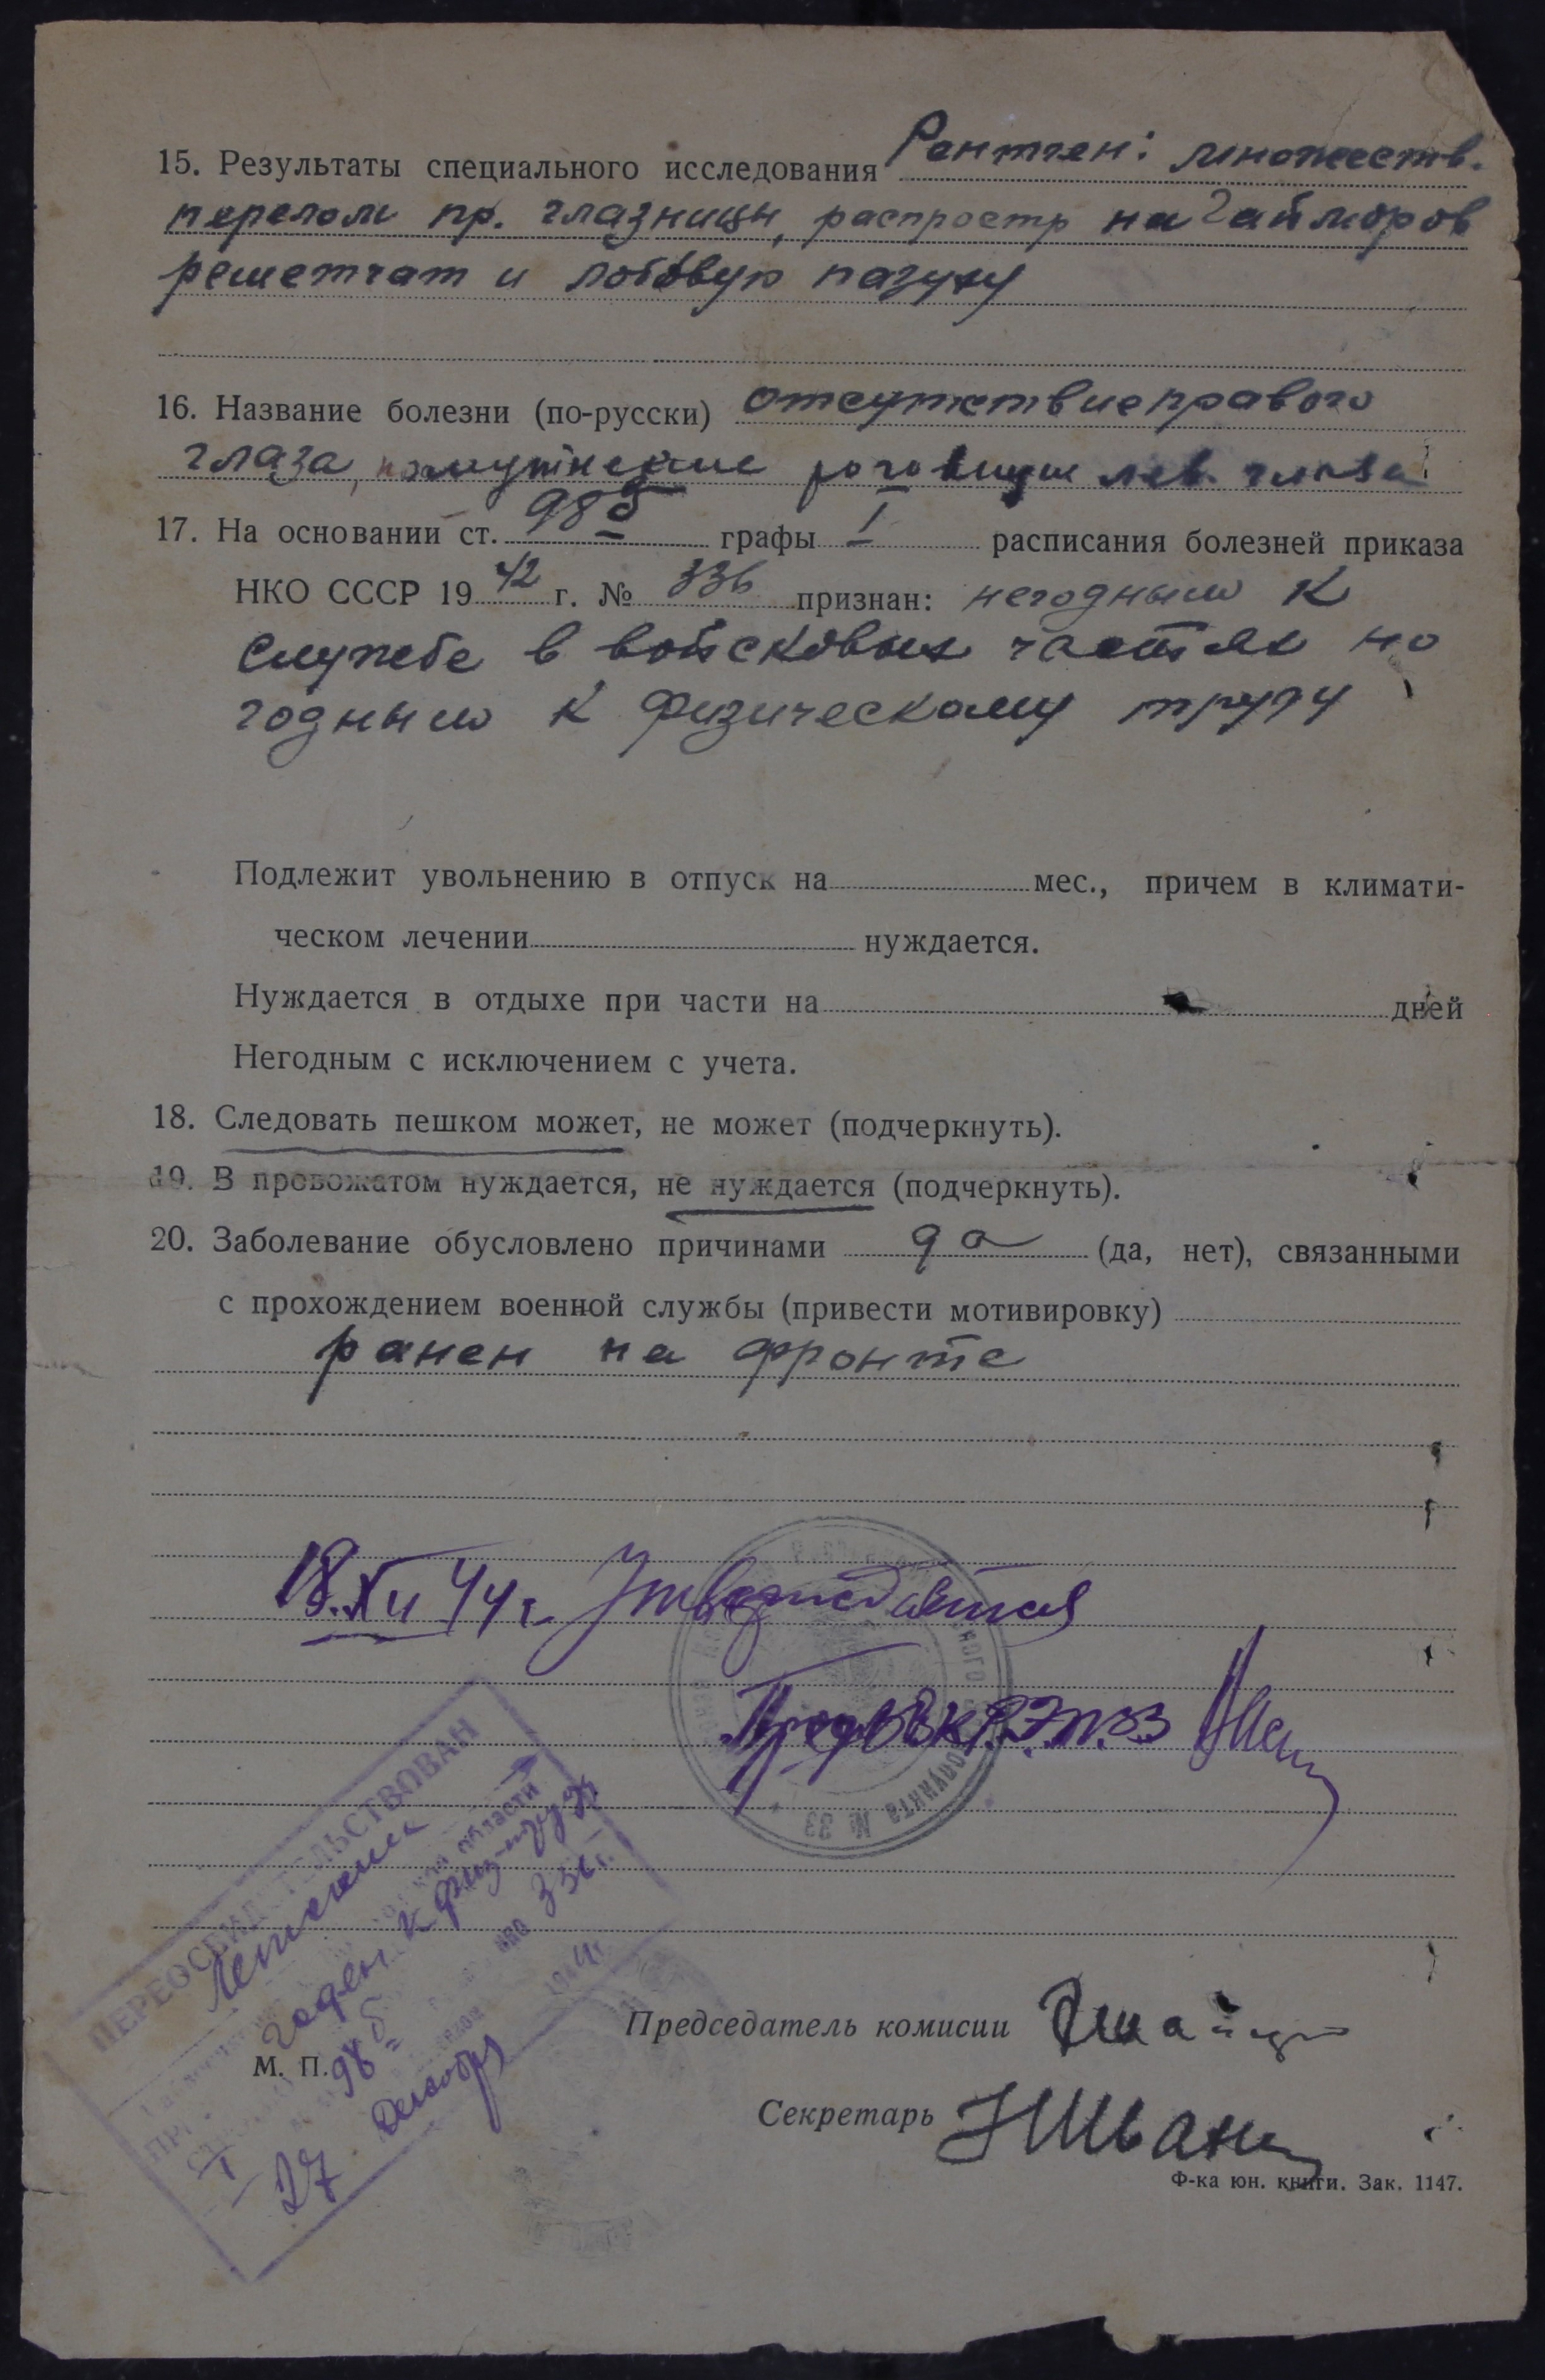 15. Результаты специального исследования Рентген: множеств.
перелом пр. глазницы, распростр на гайморов
решетчат и лобовую пазуху
16. Название болезни (по-русски) отсутствие правого
глаза, помутнение роговицы лев. глаза
17. На основании ст. 98б графы I расписания болезней приказа
НКО СССР 1942 г. № 336 признан: негодным к
службе в войсковых частях но
годным к физическому труду
Подлежит увольнению в отпуск на мес., причем в климати-
ческом лечении нуждается.
Нуждается в отдыхе при части на дней
Негодным с исключением с учета.
18. Следовать пешком может, не может (подчеркнуть).
19. В провожатом нуждается, не нуждается (подчеркнуть).
20. Заболевание обусловлено причинами да (да, нет), связанными
с прохождением военной службы (привести мотивировку)
ранен на фронте
18.XII 44 г. Утверждается
Пред ВВК РЭП 33
пункта № 33
ПЕРЕОСВИДЕТЕЛЬСТВОВАН
области
годен к физ-труду
98б НКО 336
I
27 декабр 1944
Председатель комисии
М. П.
Секретарь
Ф-ка юн. книги. Зак. 1147.